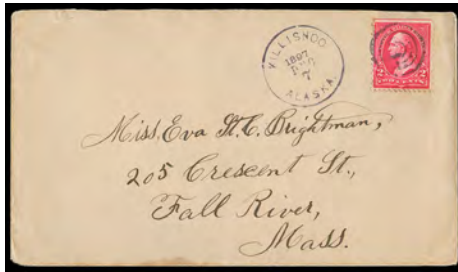 KILLISNOO
1897
7
ALASKA.
2 2
Miss. Eva St. C. Brightman,
205 Crescent St.,
Fall River,
Mass.